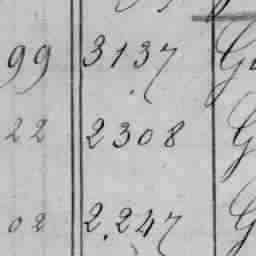 99 3137 G
22 2308 G
02 2.247 G